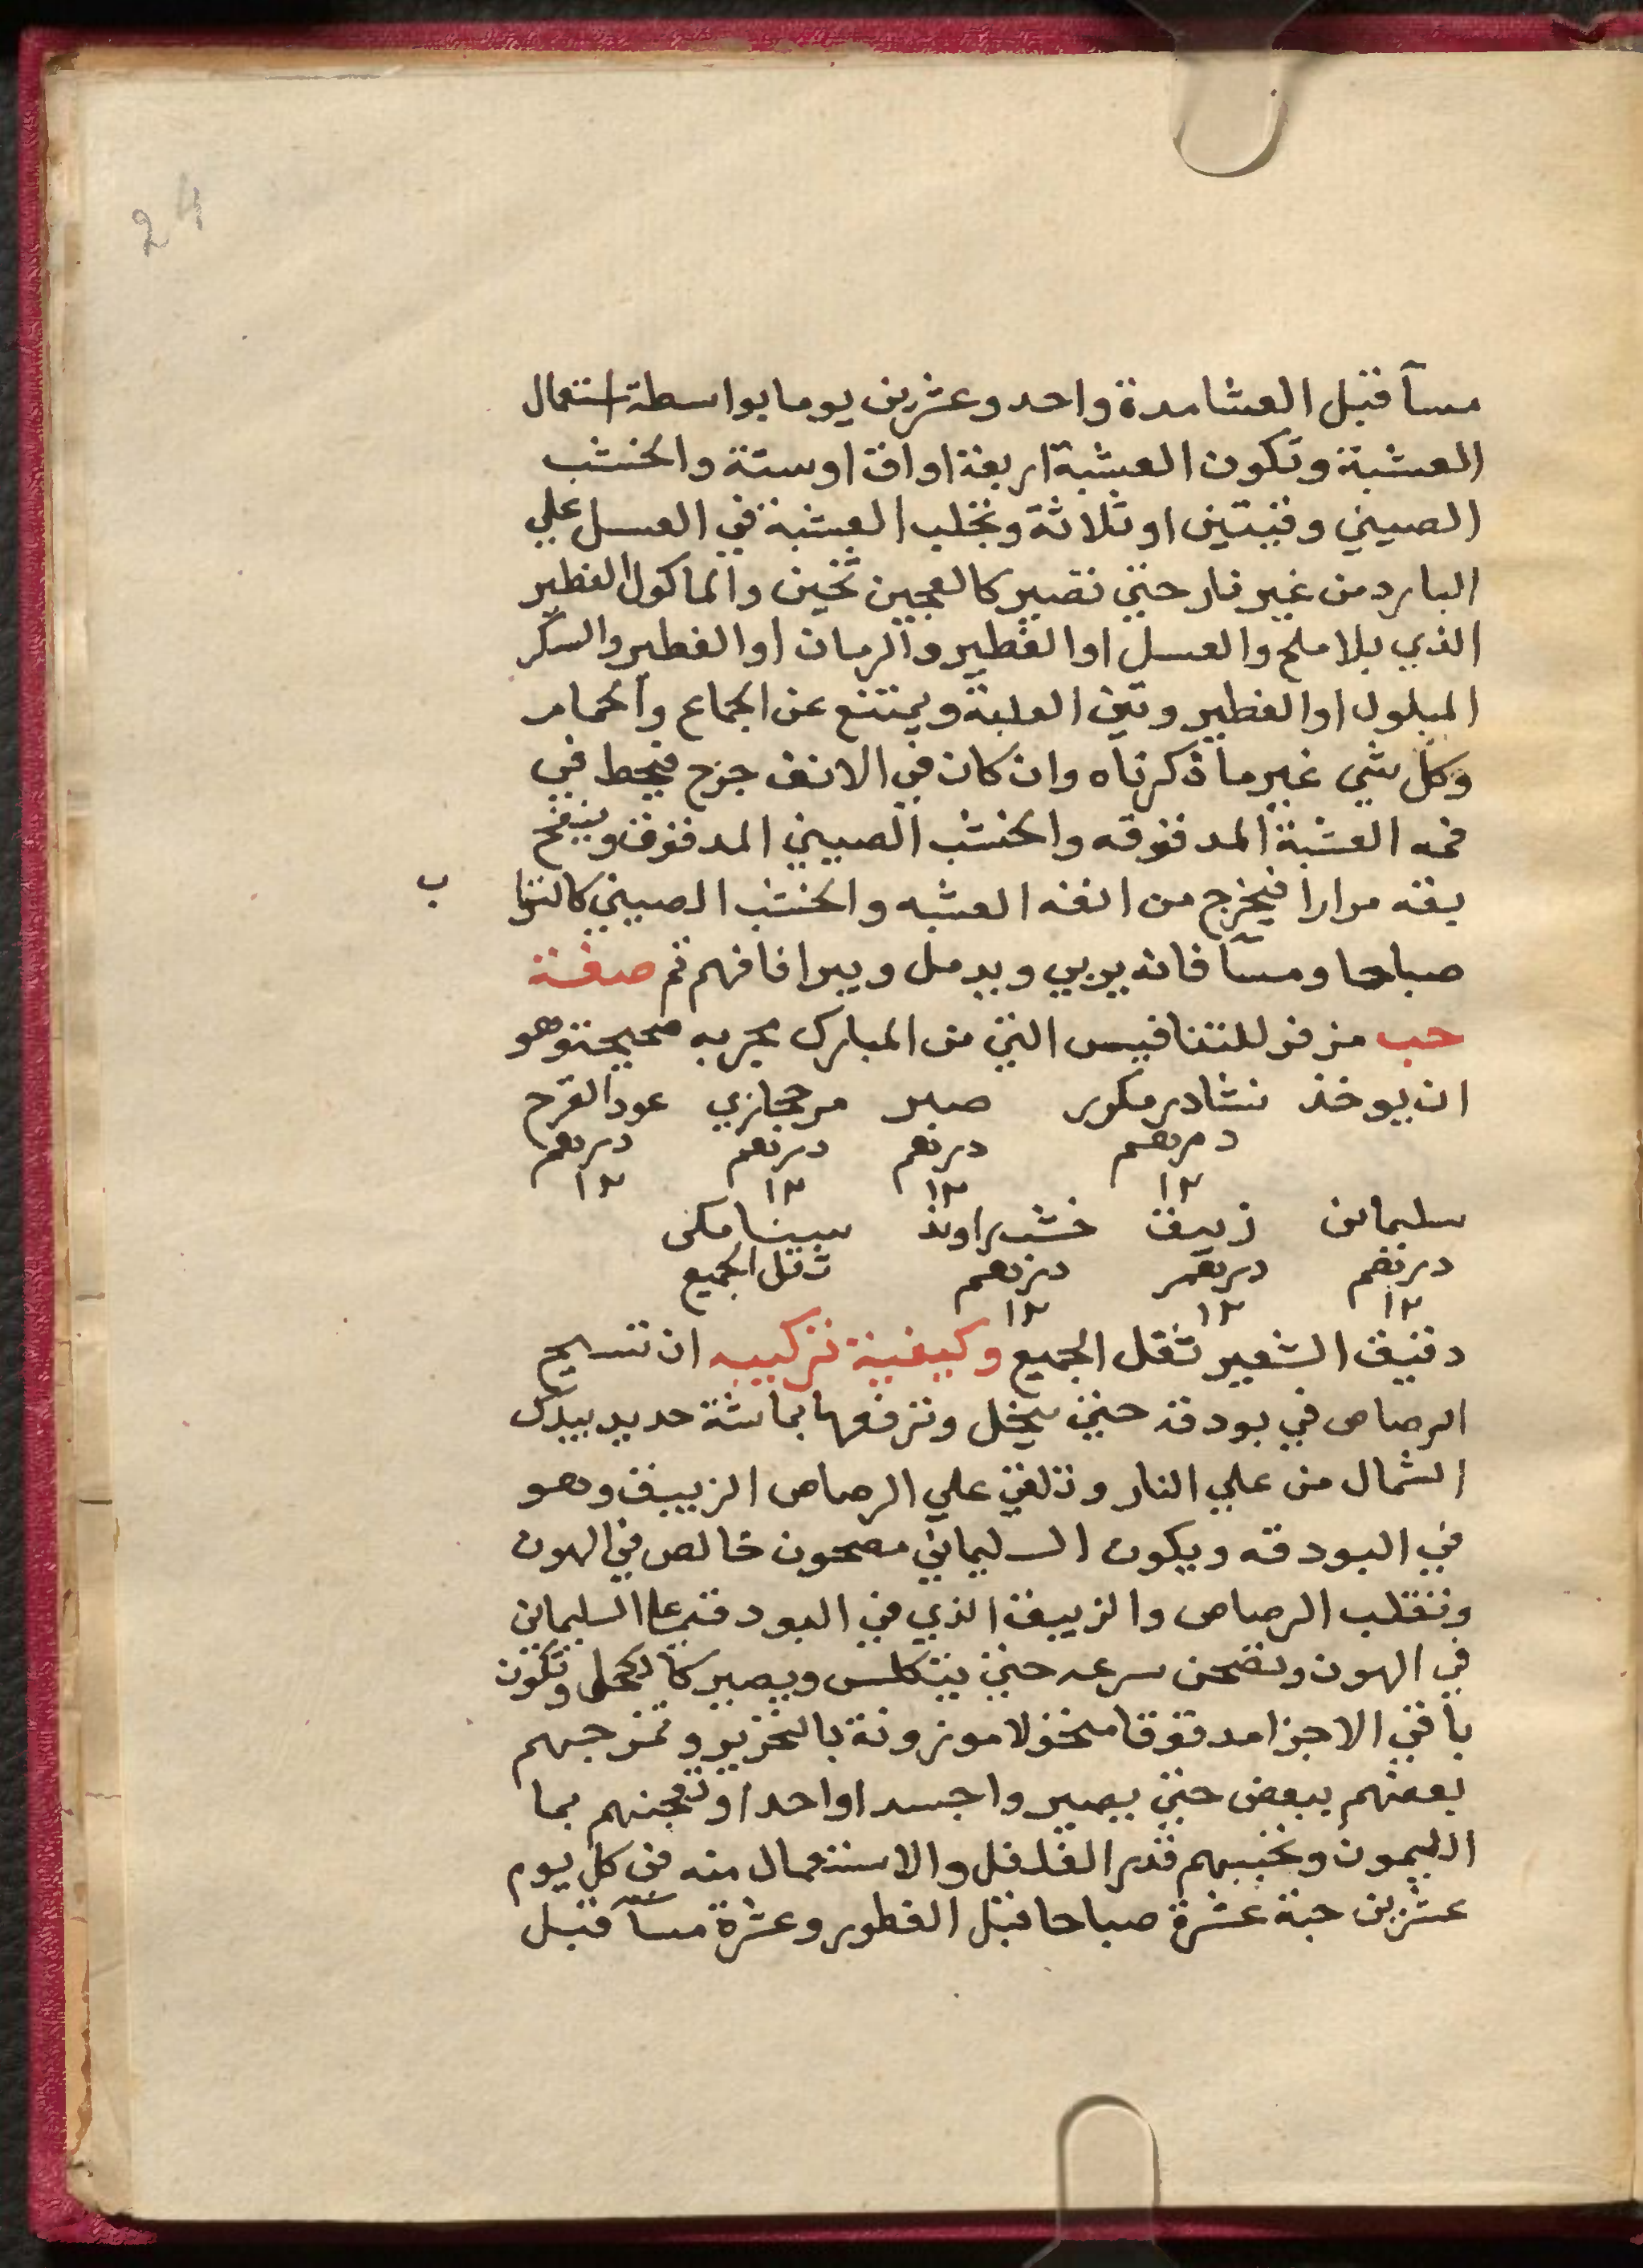 24
مسآ قبل العشا مدة واحد وعشرين يوما بواسطة استعمال
العشبة وتكون العشبة اربعة اواق او ستة والخشب
الصيني وقيتين او ثلاثة وتخلب العشبة في العسل علي
البارد من غير نار حتي تصير كالعجين ثخين والماكول الفطير
الذي بلا ملح والعسل او الفطير والرمان او الفطير والسكر
المبلول او الفطير وتين العلبة ويمتنع عن الجماع والحمام
وكل شي غير ما ذكرناه وان كان في الانف جرح فيحط في
فمه العشبة المدقوقه والخشب الصيني المدقوق وينفخ
بقه مرارا فيخرج من انفه العشبه والخشب الصيني كالتراب
صباحا ومسآ فانه يربي ويدمل ويبرا فافهم ثم صفة
حب مزفر للتنافيس التي من المبارك مجربه صحيحة وهو
ان يوخذ نشادر مكرر صبر مر حجازي عود القرح
درهم درهم درهم درهم
١٢ ١٢ ١٢ ١٢
سليماني زيبق خشب راوند سينامكي
درهم درهم درهم ثقل الجميع
١٢ ١٢ ١٢
دقيق الشعير ثقل الجميع وكيفية تركيبه ان تسيح
الرصاص في بودقة حتي ينحل وترفعها بماشة حديد بيدك
الشمال من علي النار وتلقي علي الرصاص الزيبق وهو
في البودقه ويكون السليماني مصحون خالص في الهون
وتقلب الرصاص والزيبق الذي في البودقة علي السليماني
في الهون وتصحن سرعه حتي يتكلس ويصير كالكحل وتكون
باقي الاجزا مدقوقا منخولا موزونة بالتحزير وتمزجهم
بعضهم ببعض حتي يصيروا جسدا واحدا وتعجنهم بما
الليمون وتحببهم قدر الفلفل والاستعمال منه في كل يوم
عشرين حبة عشرة صباحا قبل الفطور وعشرة مسآ قبل